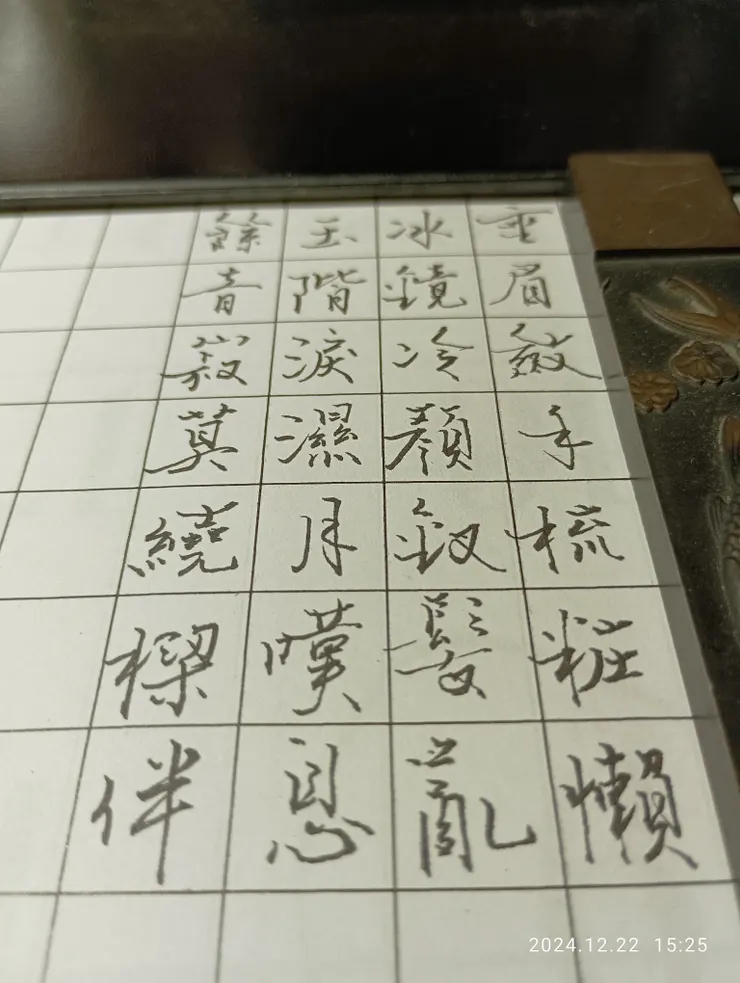 垂眉斂手梳粧懶
冰鏡冷顏釵髮亂
玉階淚濕月嘆息
餘音寂寞繞樑伴
2024.12.22 15:25